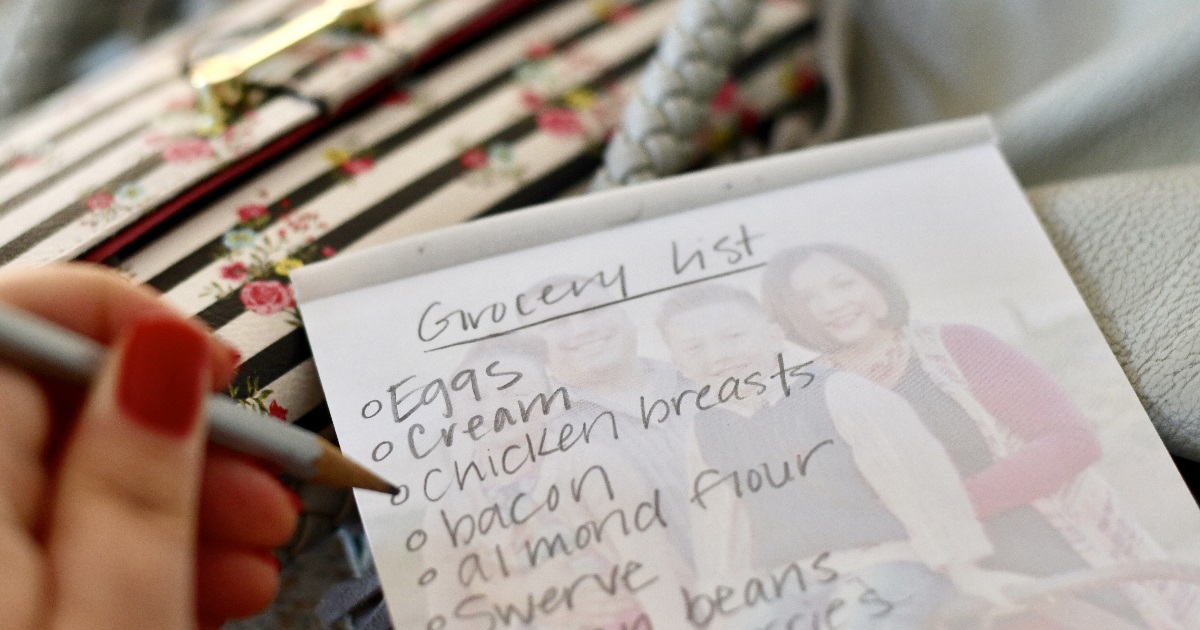 Grocery List
Eggs
Cream
Chicken breasts
bacon
almond flour
Swerve
beans